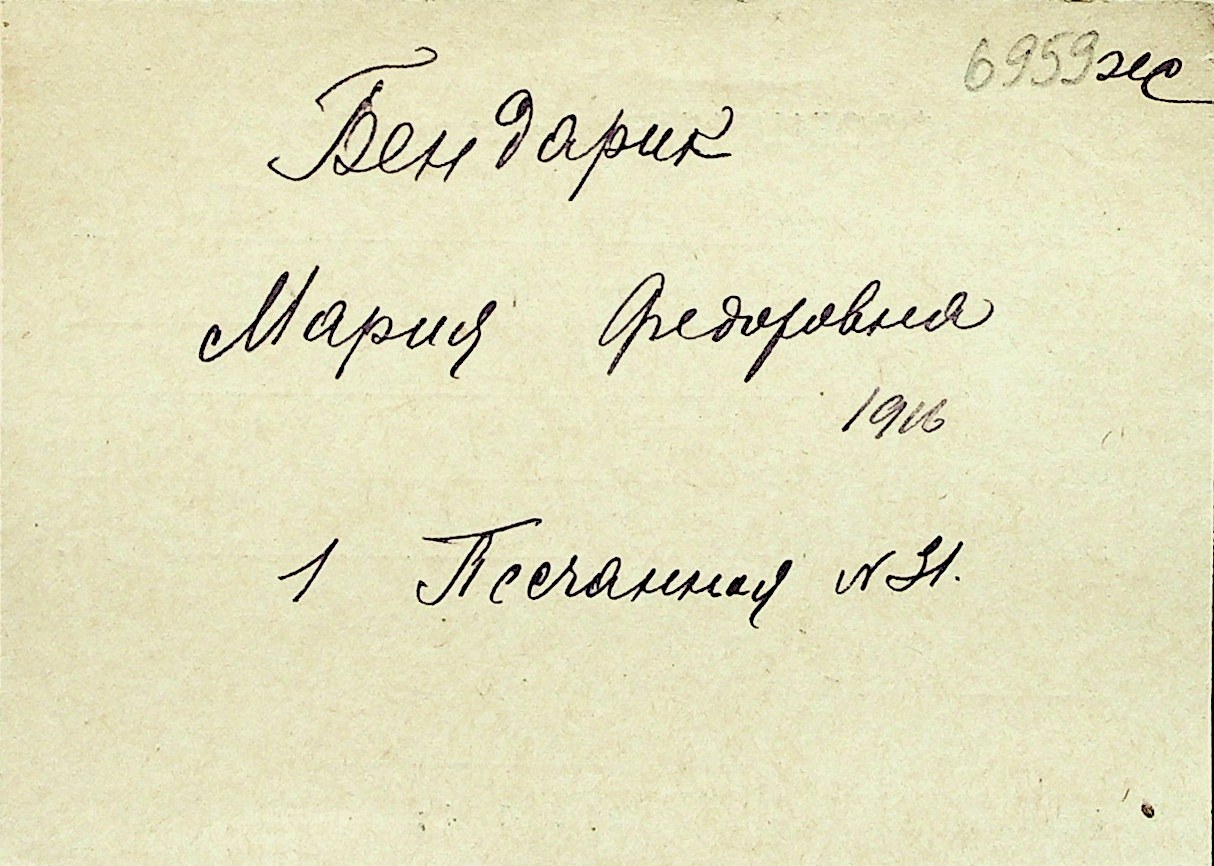 6959же
Бендарик
Мария Федоровна
1916
1 Песчанная N 31.